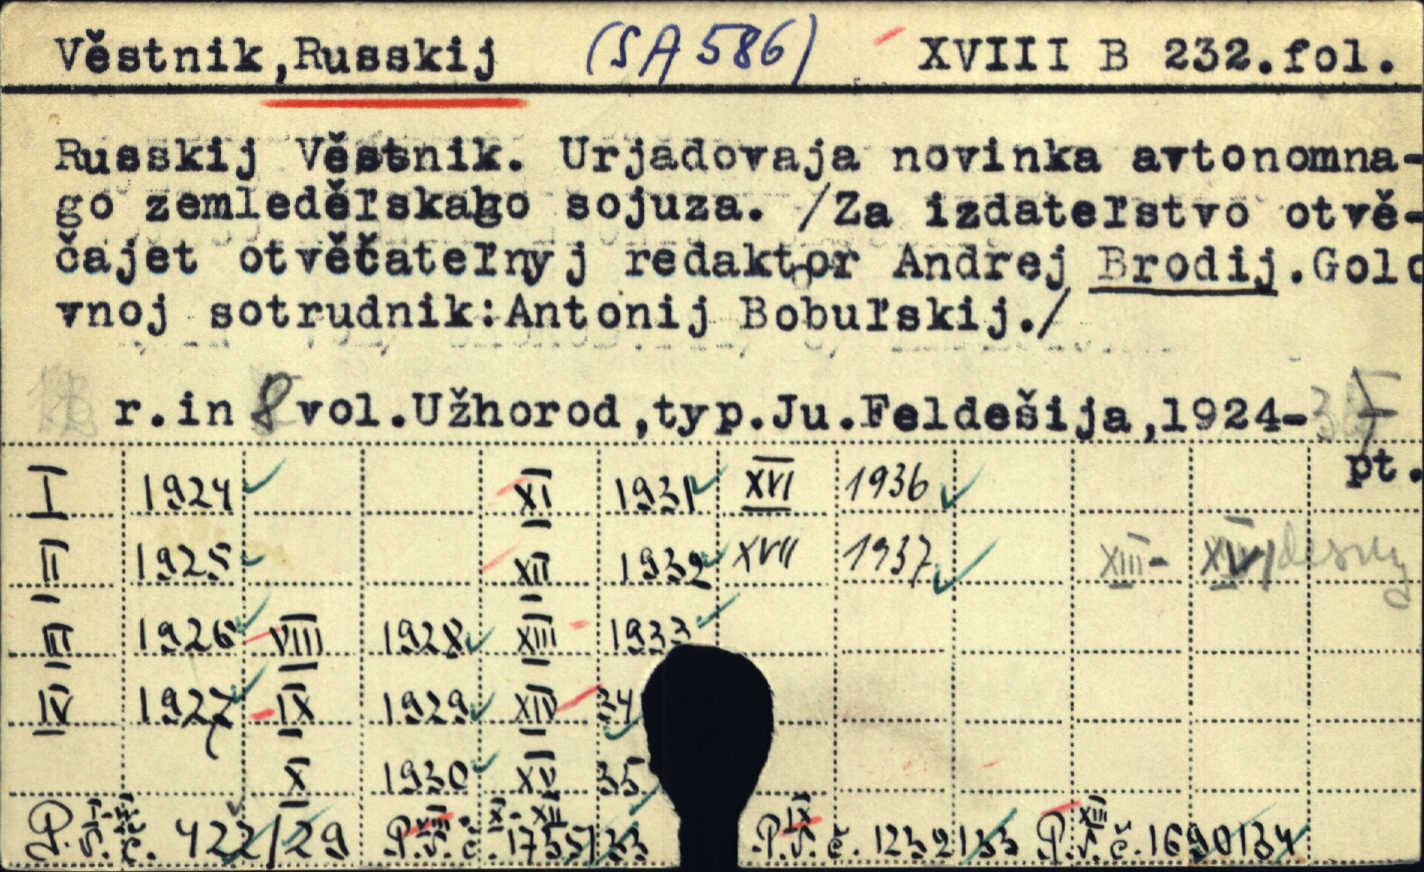 Věstnik,Russkij (SA 586) XVIII B 232.fol.
Russkij Věstnik. Urjadovaja novinka avtonomna-
go zemleděľskago sojuza. /Za izdateľstvo otvě-
čajet otvěčateľnyj redaktor Andrej Brodij.Golo
vnoj sotrudnik:Antonij Bobuľskij./
r.in 8 vol.Užhorod,typ.Ju.Feldešija,1924-
pt.
I 1924 XI 1931 XVI 1936
II 1925 XII 1932 XVII 1937 XIII- XVI
III 1926 VIII 1928 XIII 1933
IV 1927 IX 1929 XIV 34
X 1930 XV 35
I-IV VIII- X-XII IX XIII
P.V.č. 422/29 P.V.č. 1755/33 P.V.č. 1232/33 P.V.č. 1690/34